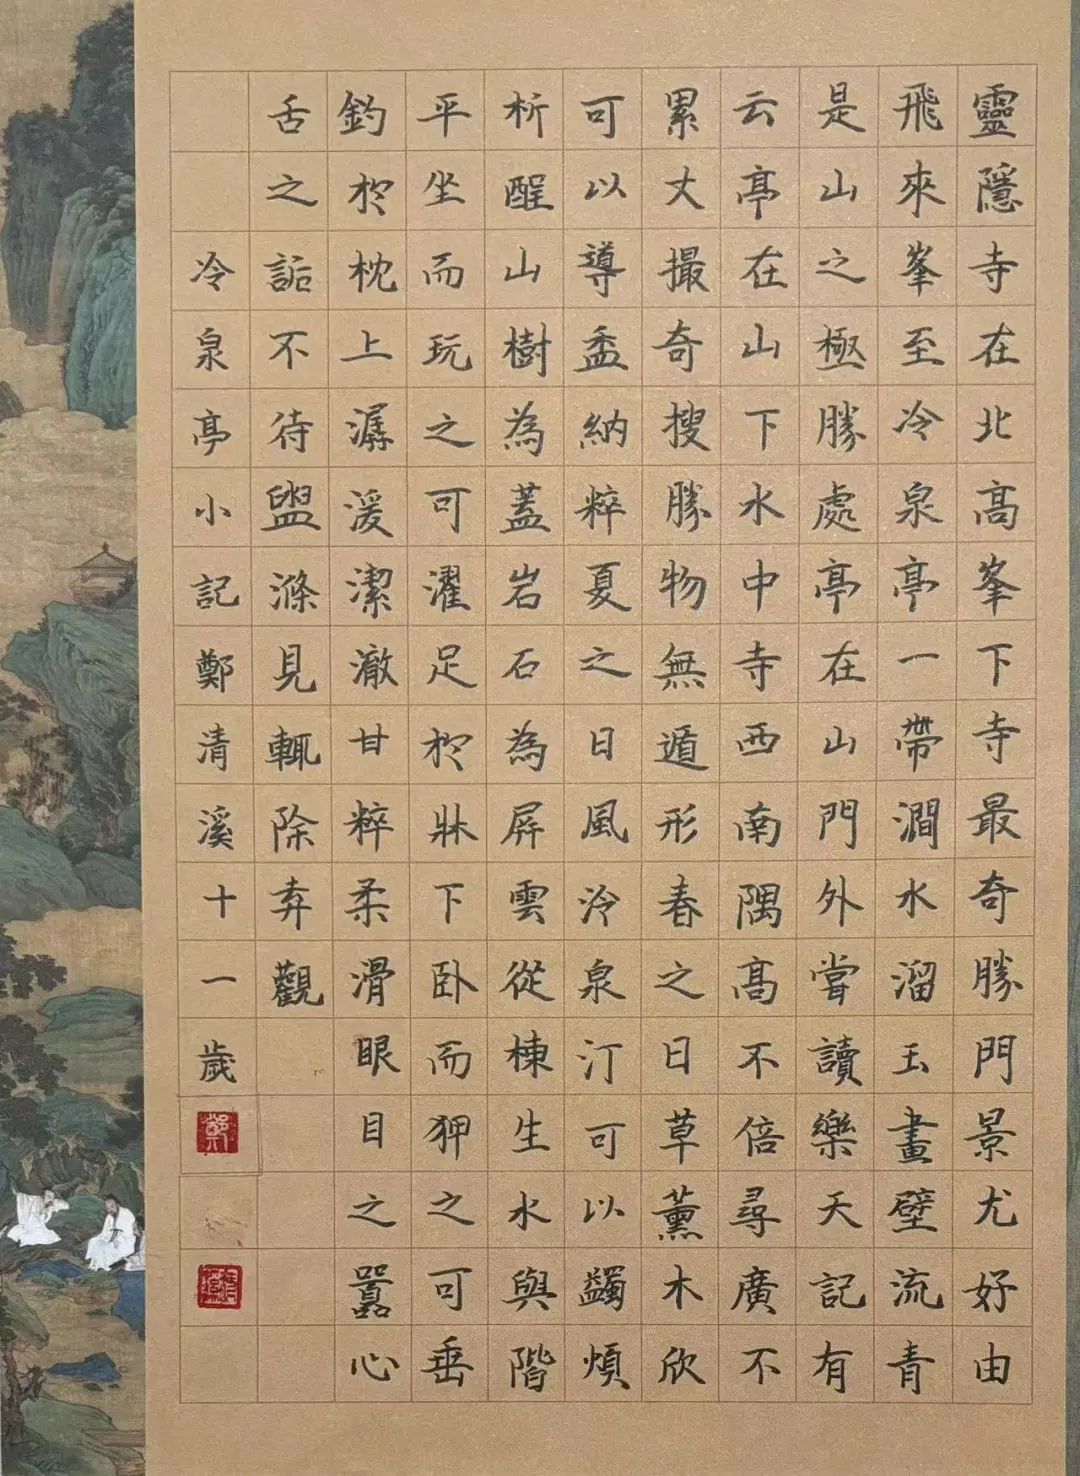 靈隱寺在北高峯下寺最奇勝門景尤好由
飛來峯至冷泉亭一帶澗水溜玉畫壁流青
是山之極勝處亭在山門外嘗讀樂天記有
云亭在山下水中寺西南隅高不倍尋廣不
累丈撮奇搜勝物無遁形春之日草薰木欣
可以導盂納粹夏之日風泠泉汀可以蠲煩
析酲山樹為蓋岩石為屏雲從棟生水與階
平坐而玩之可濯足於牀下卧而狎之可垂
釣於枕上潺湲潔澈甘粹柔滑眼目之囂心
舌之詬不待盥滌見輒除弆觀
冷泉亭小記鄭清溪十一歲
鄭